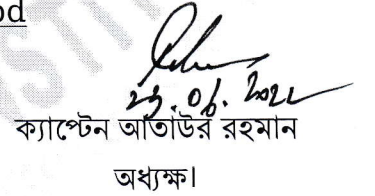 od
23.06.2022
ক্যাপ্টেন আতাউর রহমান
অধ্যক্ষ।